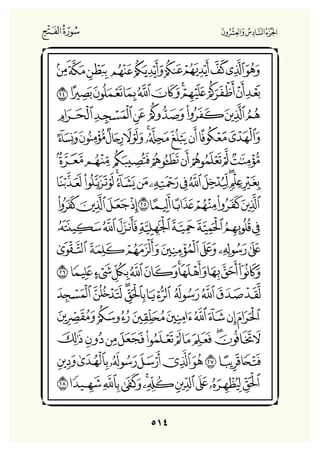 الجُزْءُ السَّادِسُ وَالعِشْرُونَ سُورَةُ الفَتْحِ
وَهُوَ ٱلَّذِى كَفَّ أَيْدِيَهُمْ عَنكُمْ وَأَيْدِيَكُمْ عَنْهُم بِبَطْنِ مَكَّةَ مِنۢ
بَعْدِ أَنْ أَظْفَرَكُمْ عَلَيْهِمْ ۚ وَكَانَ ٱللَّهُ بِمَا تَعْمَلُونَ بَصِيرًا ٢٤
هُمُ ٱلَّذِينَ كَفَرُوا۟ وَصَدُّوكُمْ عَنِ ٱلْمَسْجِدِ ٱلْحَرَامِ
وَٱلْهَدْىَ مَعْكُوفًا أَن يَبْلُغَ مَحِلَّهُۥ ۚ وَلَوْلَا رِجَالٌ مُّؤْمِنُونَ وَنِسَآءٌ
مُّؤْمِنَٰتٌ لَّمْ تَعْلَمُوهُمْ أَن تَطَـُٔوهُمْ فَتُصِيبَكُم مِّنْهُم مَّعَرَّةٌۢ
بِغَيْرِ عِلْمٍ ۖ لِّيُدْخِلَ ٱللَّهُ فِى رَحْمَتِهِۦ مَن يَشَآءُ ۚ لَوْ تَزَيَّلُوا۟ لَعَذَّبْنَا
ٱلَّذِينَ كَفَرُوا۟ مِنْهُمْ عَذَابًا أَلِيمًا ٢٥ إِذْ جَعَلَ ٱلَّذِينَ كَفَرُوا۟
فِى قُلُوبِهِمُ ٱلْحَمِيَّةَ حَمِيَّةَ ٱلْجَٰهِلِيَّةِ فَأَنزَلَ ٱللَّهُ سَكِينَتَهُۥ
عَلَىٰ رَسُولِهِۦ وَعَلَى ٱلْمُؤْمِنِينَ وَأَلْزَمَهُمْ كَلِمَةَ ٱلتَّقْوَىٰ
وَكَانُوٓا۟ أَحَقَّ بِهَا وَأَهْلَهَا ۚ وَكَانَ ٱللَّهُ بِكُلِّ شَىْءٍ عَلِيمًا ٢٦
لَّقَدْ صَدَقَ ٱللَّهُ رَسُولَهُ ٱلرُّءْيَا بِٱلْحَقِّ ۖ لَتَدْخُلُنَّ ٱلْمَسْجِدَ
ٱلْحَرَامَ إِن شَآءَ ٱللَّهُ ءَامِنِينَ مُحَلِّقِينَ رُءُوسَكُمْ وَمُقَصِّرِينَ
لَا تَخَافُونَ ۖ فَعَلِمَ مَا لَمْ تَعْلَمُوا۟ فَجَعَلَ مِن دُونِ ذَٰلِكَ
فَتْحًا قَرِيبًا ٢٧ هُوَ ٱلَّذِىٓ أَرْسَلَ رَسُولَهُۥ بِٱلْهُدَىٰ وَدِينِ
ٱلْحَقِّ لِيُظْهِرَهُۥ عَلَى ٱلدِّينِ كُلِّهِۦ ۚ وَكَفَىٰ بِٱللَّهِ شَهِيدًا ٢٨
٥١٤